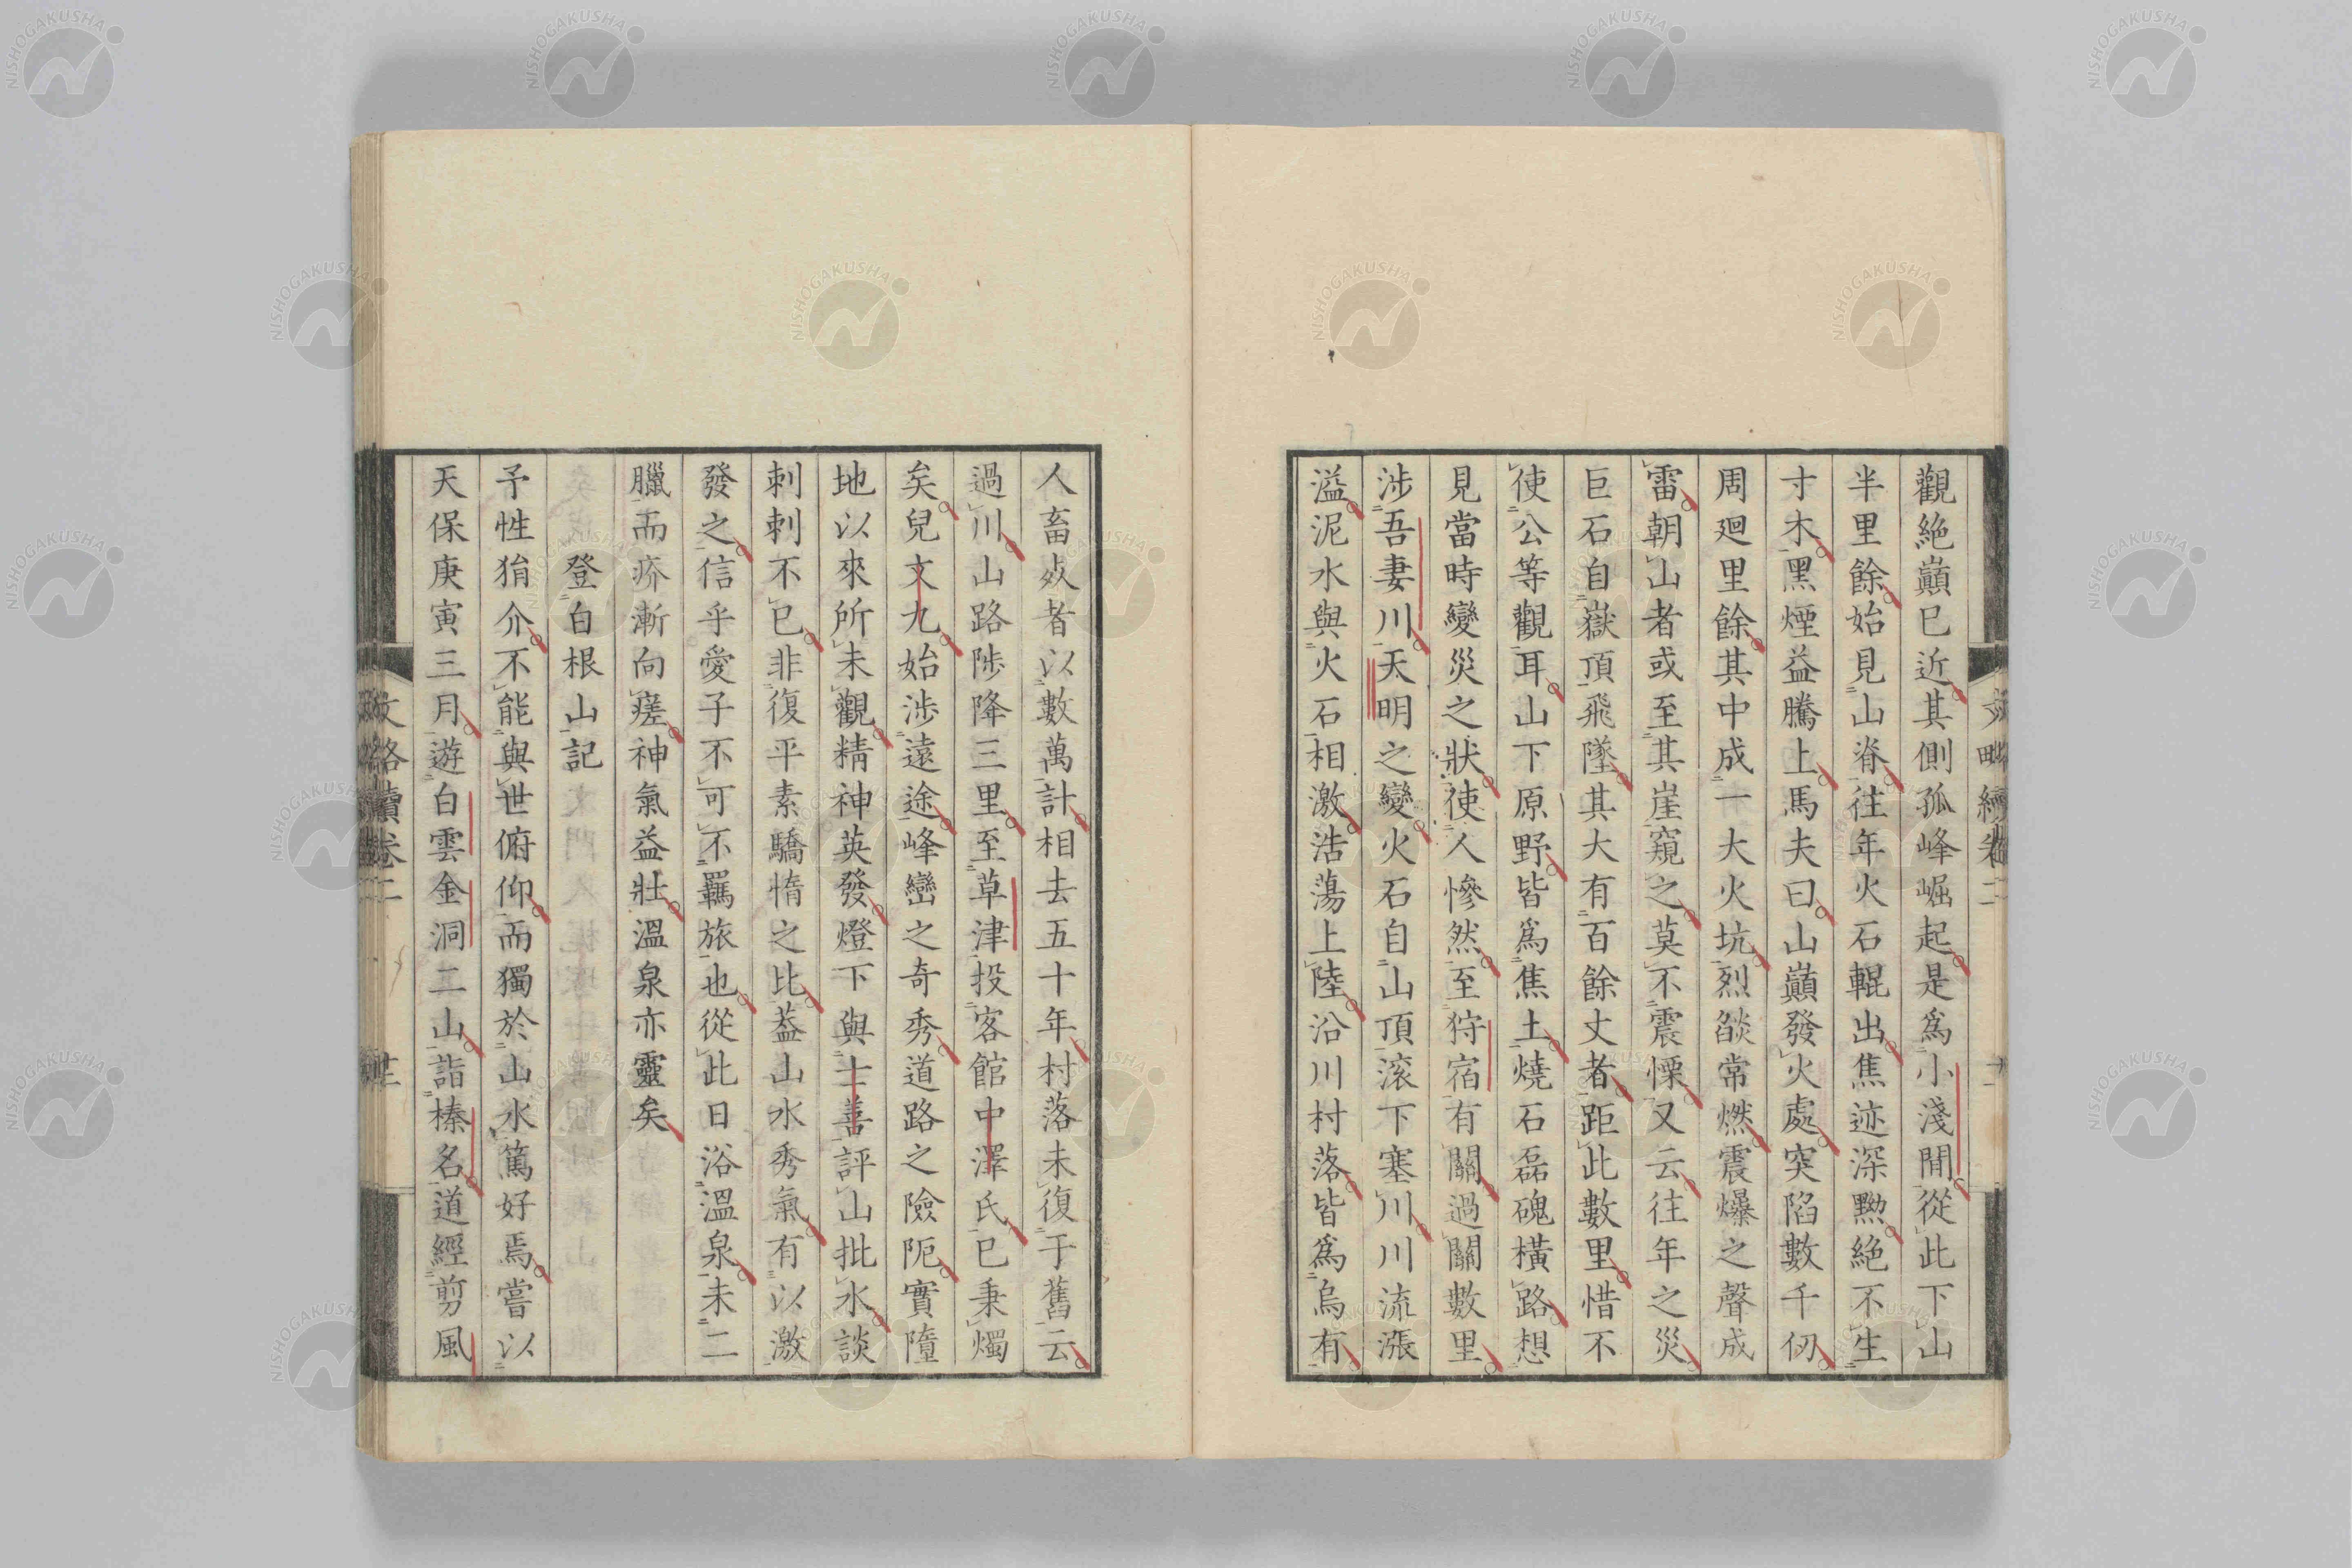 觀絶巓已近其側孤峰崛起是爲小淺間從此下山
半里餘始見山脊往年火石輥出焦迹深黝絶不生
寸木黑煙益騰上馬夫曰山巓發火處突陷數千仞
周廻里餘其中成一大火坑烈燄常燃震爆之聲成
雷朝山者或至其崖窺之莫不震慄又云往年之災
巨石自嶽頂飛墜其大有百餘丈者距此數里惜不
使公等觀耳山下原野皆爲焦土燒石磊磈橫路想
見當時變災之狀使人慘然至狩宿有關過關數里
涉吾妻川天明之變火石自山頂滚下塞川川流漲
溢泥水與火石相激浩蕩上陸沿川村落皆爲烏有
人畜死者以數萬計相去五十年村落未復于舊云
過川山路陟降三里至草津投客館中澤氏已秉燭
矣兒文九始涉遠途峰巒之奇秀道路之險阨實隨
地以來所未觀精神英發燈下與士善評山批水談
刺刺不已非復平素驕惰之比葢山水秀氣有以激
發之信乎愛子不可不羈旅也從此日浴溫泉未二
臘而疥漸向瘥神氣益壯溫泉亦靈矣
登白根山記
予性狷介不能與世俯仰而獨於山水篤好焉嘗以
天保庚寅三月遊白雲金洞二山詣榛名道經剪風
文略續卷二